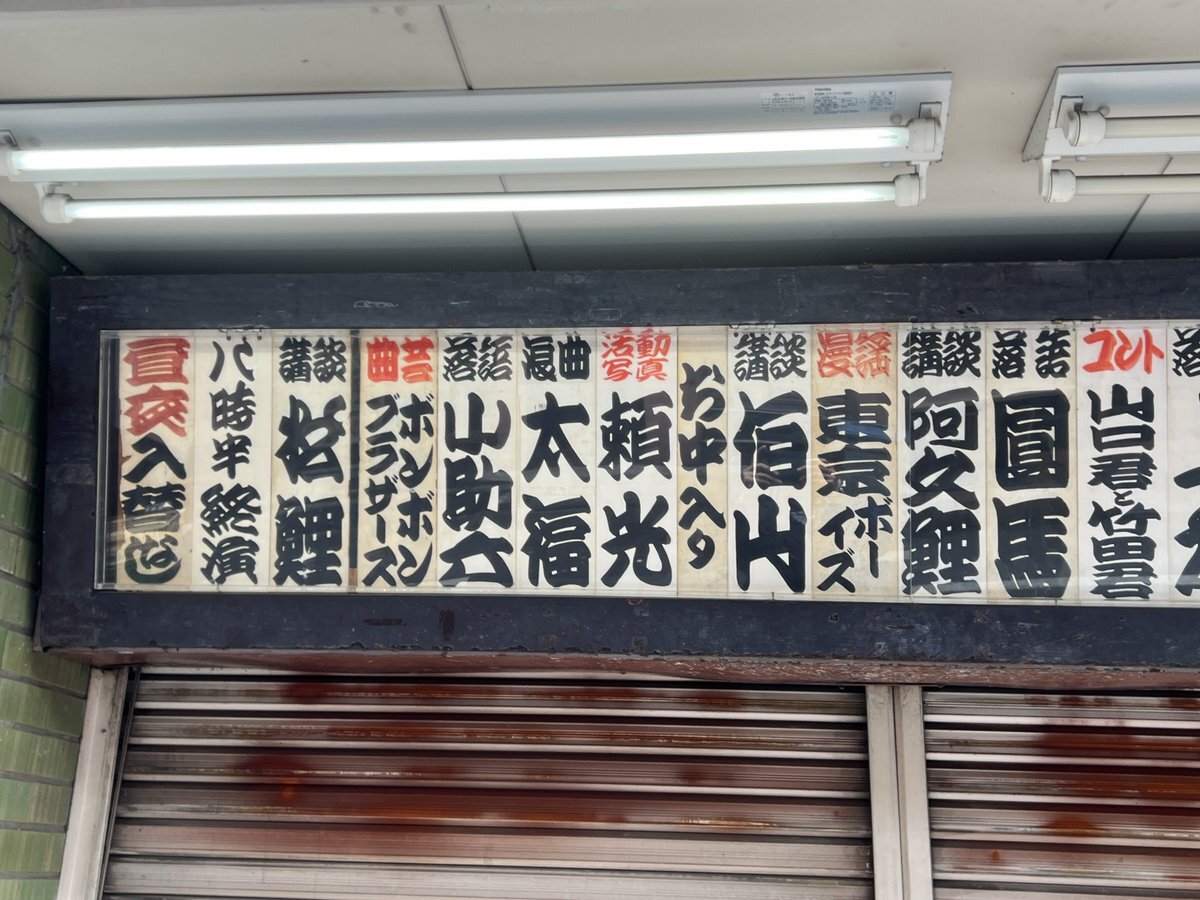 コント
山口君と竹田君
落語
圓馬
講談
阿久鯉
漫謡
東京ボーイズ
講談
伯山
お中入り
活動
写真
頼光
浪曲
太福
落語
小助六
曲芸
ボンボン
ブラザース
講談
松鯉
八時半終演
昼夜入替なし